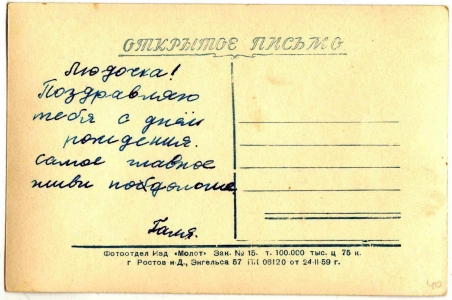 ОТКРЫТОЕ ПИСЬМО
Людочка!
Поздравляю
тебя с днём
рождения.
Самое главное
живи побольше
Галя.
Фотоотдел Изд «Молот» Зак. № 15. т. 100.000 тыс. ц 75 к.
г Ростов н-Д., Энгельса 57 ПК 06120 от 24-II-59 г.